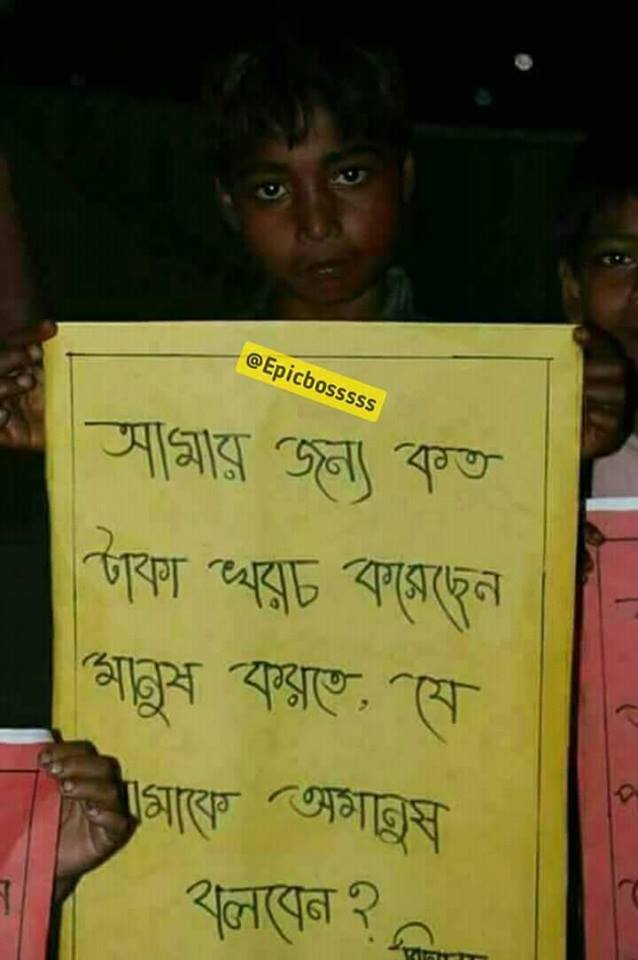 @Epicbosssss
আমার জন্য কত
টাকা খরচ করেছেন
মানুষ করতে, যে
আমাকে অমানুষ
বলবেন?